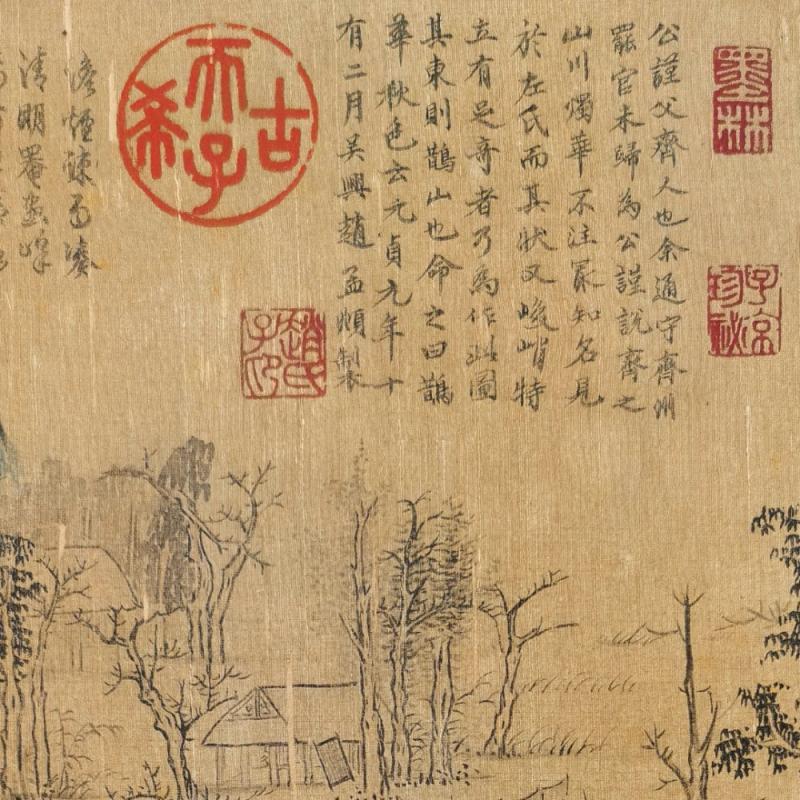 公謹父齊人也余通守齊州
罷官來歸為公謹說齊之
山川獨華不注最知名見
於左氏而其狀又峻峭特
立有足奇者乃為作此圖
其東則鵲山也命之曰鵲
華秋色云元貞元年十
有二月吳興趙孟頫製
古希天子
趙氏子印
墨林
子京珍秘
澹煙疎雨湊
清明罨畫峰